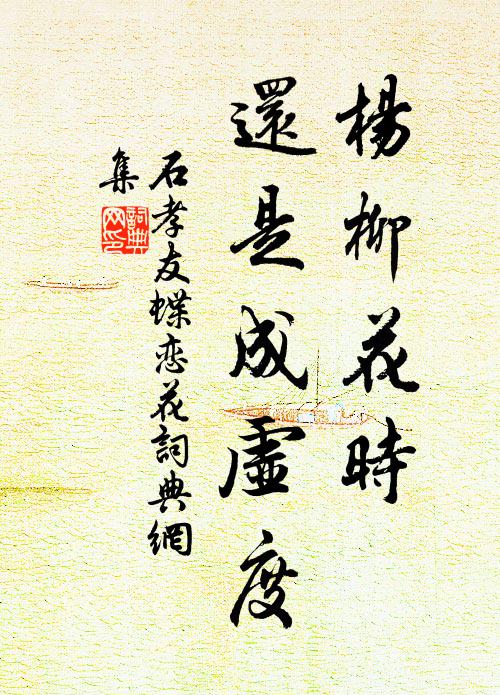 楊柳花時
還是成虛度
石孝友蝶恋花詞典網
集
詞典网印